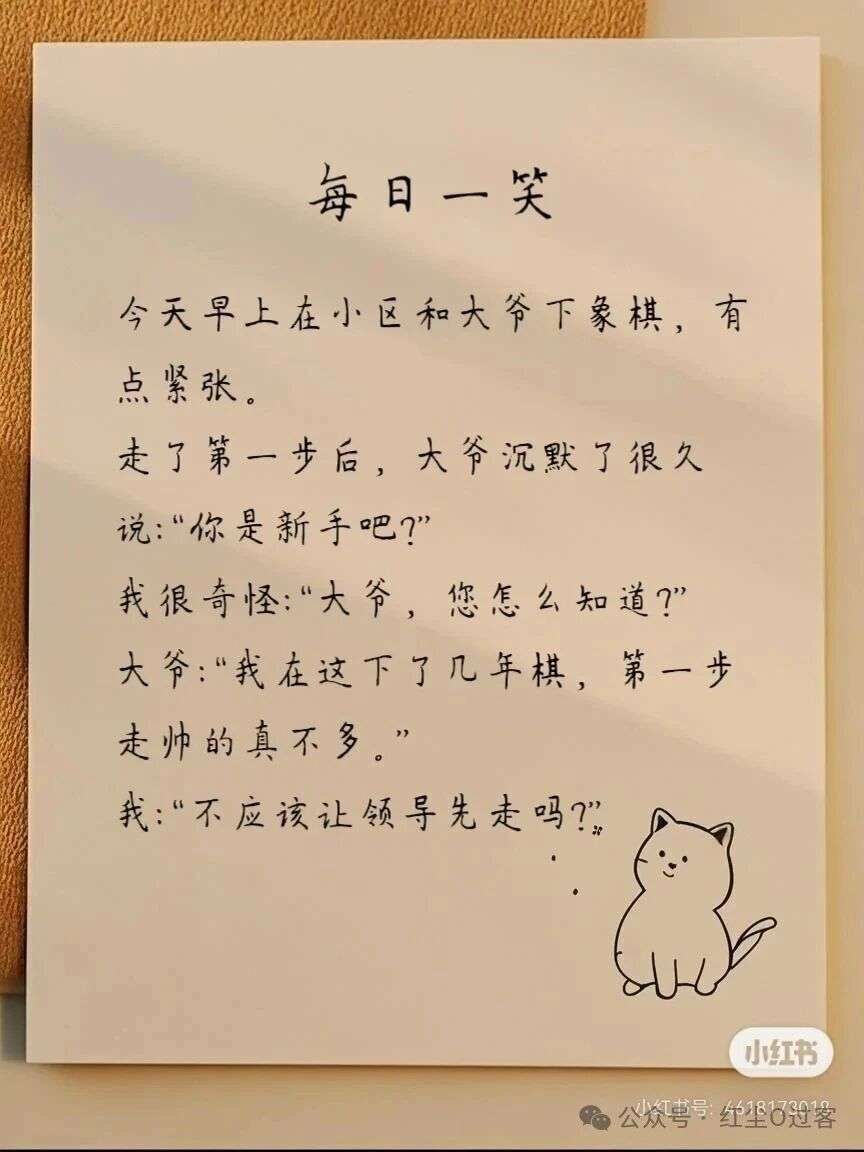 每日一笑
今天早上在小区和大爷下象棋，有
点紧张。
走了第一步后，大爷沉默了很久
说：“你是新手吧？”
我很奇怪：“大爷，您怎么知道？”
大爷：“我在这下了几年棋，第一步
走帅的真不多。”
我：“不应该让领导先走吗？”
小红书
小红书号：4618173018
公众号·红尘O过客